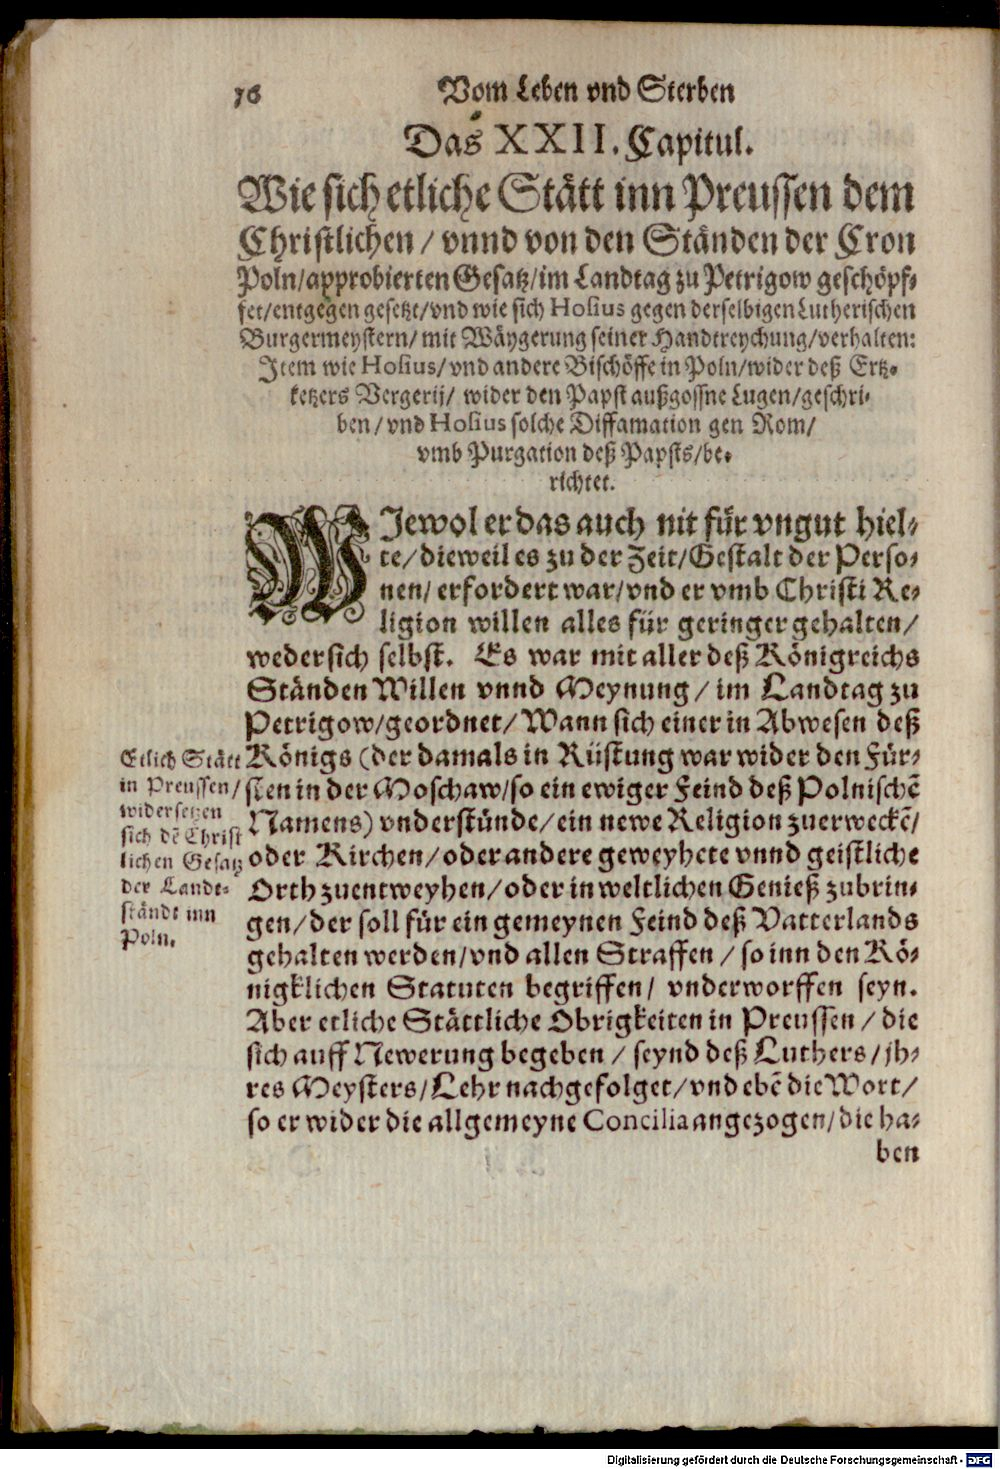 76 Vom Leben vnd Sterben
Das XXII. Capitul.
Wie sich etliche Stätt inn Preussen dem
Christlichen / vnnd von den Ständen der Cron
Poln/approbierten Gesatz/im Landtag zu Petrigow geschöpf-
fet/entgegen gesetzt/vnd wie sich Hosius gegen derselbigen Lutherischen
Burgermeystern/ mit Wäygerung seiner Handtreychung/verhalten:
Item wie Hosius/ vnd andere Bischöffe in Poln/wider deß Ertz-
ketzers Vergerij/ wider den Papst außgossne Lugen/geschri-
ben/ vnd Hosius solche Diffamation gen Rom/
vmb Purgation deß Papsts/be-
richtet.
WJewol er das auch nit für vngut hiel-
te/dieweil es zu der Zeit/Gestalt der Perso-
nen/ erfordert war/vnd er vmb Christi Re-
ligion willen alles für geringer gehalten/
weder sich selbst. Es war mit aller deß Königreichs
Ständen Willen vnnd Meynung / im Landtag zu
Petrigow/geordnet/ Wann sich einer in Abwesen deß
Königs (der damals in Rüstung war wider den Für-
sten in der Moschaw/so ein ewiger Feind deß Polnischē
Namens) vnderstünde/ein newe Religion zuerweckē/
oder Kirchen/oder andere geweyhete vnnd geistliche
Orth zuentweyhen/oder in weltlichen Genieß zubrin-
gen/der soll für ein gemeynen Feind deß Vatterlands
gehalten werden/vnd allen Straffen / so inn den Kö-
nigklichen Statuten begriffen/ vnderworffen seyn.
Aber etliche Stättliche Obrigkeiten in Preussen / die
sich auff Newerung begeben / seynd deß Luthers/jh-
res Meysters/Lehr nachgefolget/vnd ebē die Wort/
so er wider die allgemeyne Concilia angezogen/die ha-
ben
Etlich Stätt
in Preussen/
widersetzen
sich dē Christ
lichen Gesatz
der Landt-
ständt inn
Poln.
Digitalisierung gefördert durch die Deutsche Forschungsgemeinschaft - DFG